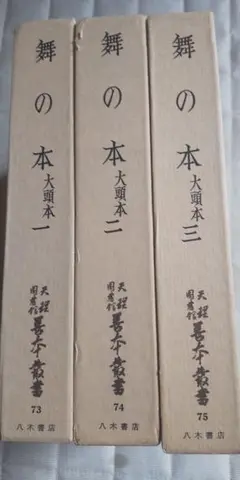 舞の本 大頭本 一
天理図書館善本叢書
73
八木書店
舞の本 大頭本 二
天理図書館善本叢書
74
八木書店
舞の本 大頭本 三
天理図書館善本叢書
75
八木書店